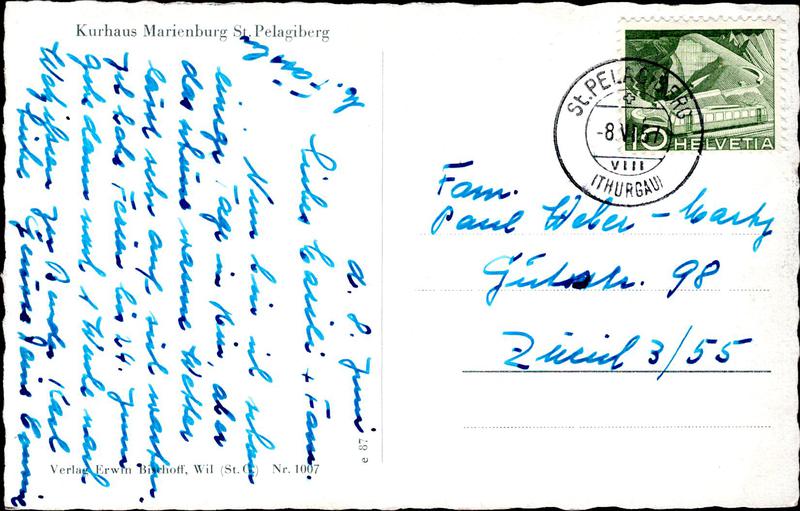 Kurhaus Marienburg St. Pelagiberg
d. 8. Juni
Liebes Caecili + Fam.
Nun bin ich schon
einige Tage in Kur, aber
das schöne warme Wetter
lässt sehr auf sich warten.
Ich habe Ferien bis 24. Juni
gehe dann noch 1 Woche nach
Walzenhausen zu Bruder Karl
Liebe Grüsse
Verlag Erwin Bischoff, Wil (St. G.) Nr. 1007
e 87
St. PELAGIBERG
-8.VI.57
VIII
(THURGAU)
10 HELVETIA
Fam.
Paul Weber - Marty
Gutstr. 98
Zürich 3/55